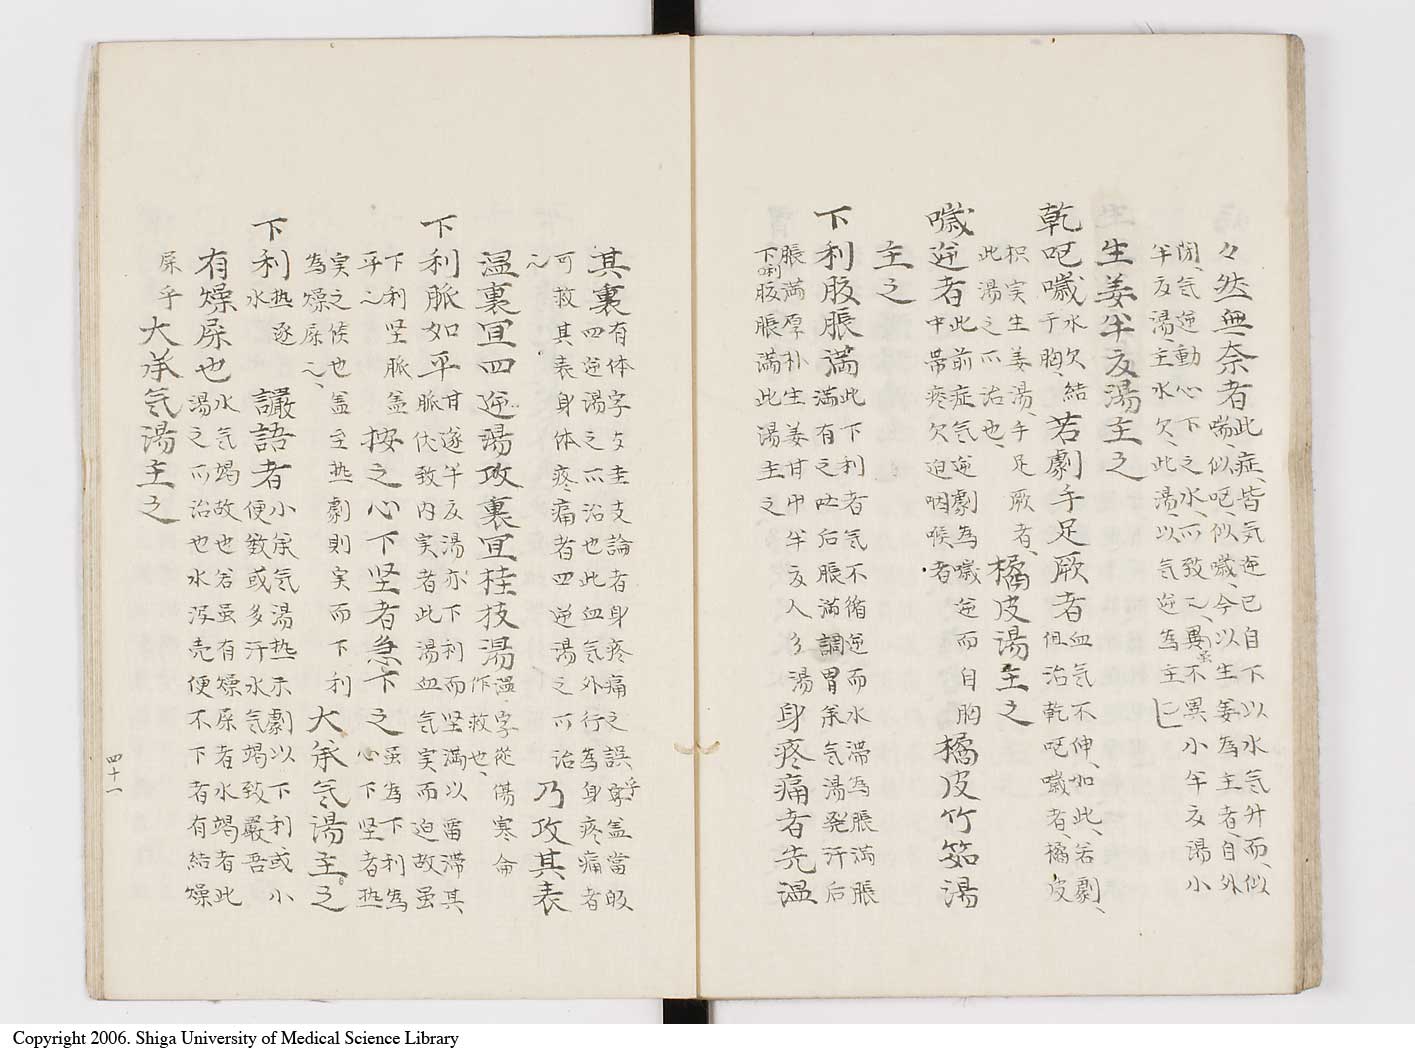 々然無奈者此症皆気逆已自下以水気升而似
喘似呕似噦今以生姜為主者自外
閉気逆動心下之水而致之異不異小半夏湯小
半夏湯主水欠此湯以気逆為主
生姜半夏湯主之
乾呕噦水欠結于胸若劇手足厥者血気不伸如此若劇
但治乾呕噦者橘皮
枳実生姜湯手足厥者
此湯之所治也橘皮湯主之
噦逆者此前症気逆劇為噦逆而自胸
中帯疼欠迫咽喉者橘皮竹筎湯
主之
下利腹脹満此下利者気不循逆而水滞為脹満脹
満有之吐后脹満調胃承気湯発汗后
脹満厚朴生姜甘中半夏人参湯
下利腹脹満此湯主之身疼痛者先温
其裏有体字支圭支論者身疼痛之誤字盖當的
四逆湯之所治也此血気外行為身疼痛者
可救其表身体疼痛者四逆湯之可治
也乃攻其表
温裏宜四逆湯攻裏宜桂枝湯温字從傷寒侖
作救也
下利脈如平甘遂半夏湯亦下利而坚満以畱滞其
脈伏致内実者此湯血気実而迫故虽
下利坚脈盖
平也按之心下坚者急下之虽為下利為
心下坚者热
実之候也盖至热劇則実而下利
為燥屎也大承気湯主之
下利热逐
水讝語者小承気湯热示劇以下利或小
便数或多汗水気竭致巖吾
有燥屎也水気竭故也若虽有燥屎者水竭者此
湯之所治也水泻売便不下者有結燥
屎乎大承気湯主之
四十一
Copyright 2006. Shiga University of Medical Science Library